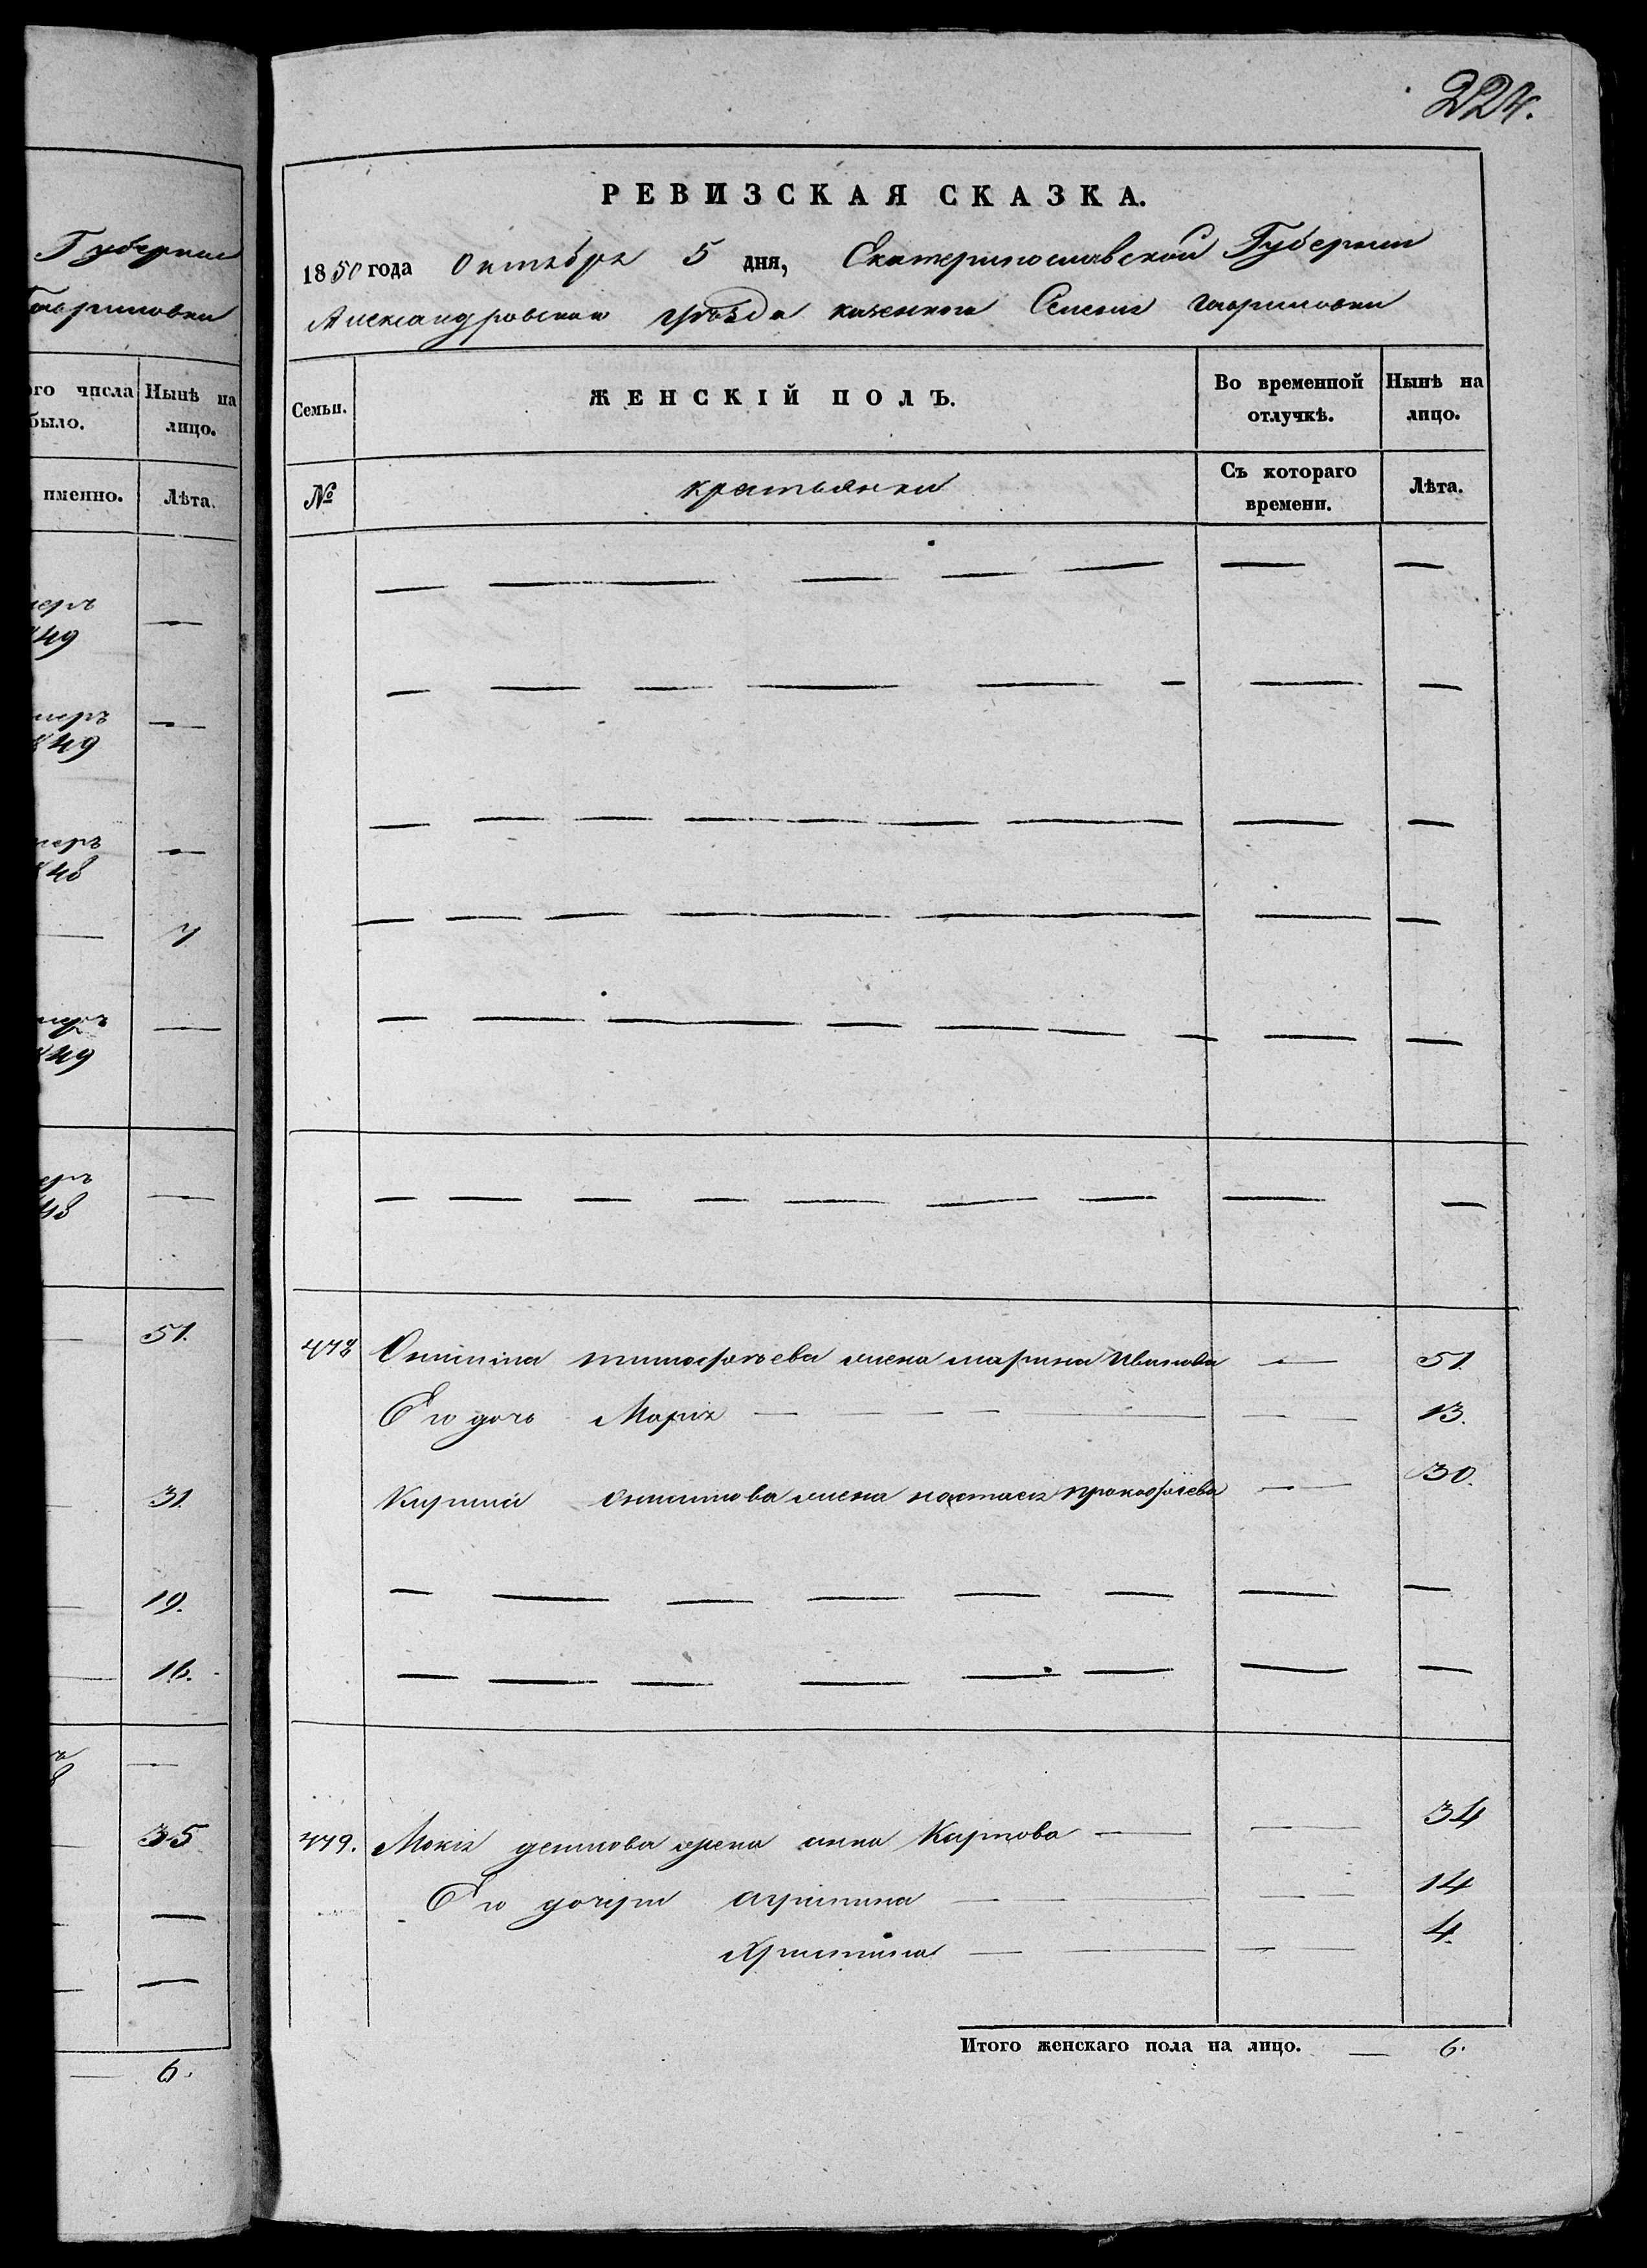 Губерніи
Гавриловки
ого числа
было.
Нынѣ на
лицо.
именно.
Лѣта.
меръ
849
меръ
849
меръ
848
7
меръ
849
меръ
848
51.
31.
19.
16.
35
6.
224.
РЕВИЗСКАЯ СКАЗКА.
1850 года Октября 5 дня, Екатеринославской Губерніи
Александровскаго уѣзда казеннаго Селенія Гавриловки
Семьи.
ЖЕНСКІЙ ПОЛЪ.
Во временной
отлучкѣ.
Нынѣ на
лицо.
№
крестьянки
Съ котораго
времени.
Лѣта.
478 Онисима тимофѣева жена марина Иванова — 51.
Его дочь Марія — 13.
Кирилы Онисимова жена настасія прокофіева — 30.
479. Мокія демидова жена анна Карпова — 34
Его дочери агрипина — 14
Христина — 4.
Итого женскаго пола на лицо. — 6.